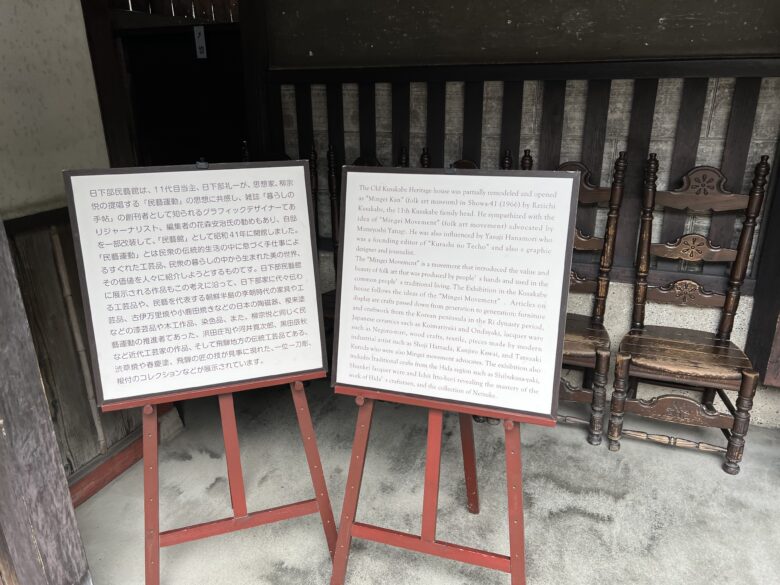 日下部民藝館は、11代目当主、日下部礼一が、思想家、柳宗
悦の提唱する「民藝運動」の思想に共感し、雑誌「暮らしの
手帖」の創刊者として知られるグラフィックデザイナーであ
りジャーナリスト、編集者の花森安治氏の勧めもあり、自邸
を一部改装して、「民藝館」として昭和41年に開館しました。
「民藝運動」とは民衆の伝統的生活の中に息づく手仕事によ
るすぐれた工芸品、民衆の暮らしの中から生まれた美の世界、
その価値を人々に紹介しようとするものです。日下部民藝館
に展示される作品もこの考えに沿って、日下部家に代々伝わ
る工芸品や、民藝を代表する朝鮮半島の李朝時代の家具や工
芸品、古伊万里焼や小鹿田焼きなどの日本の陶磁器、根来塗
などの漆芸品や木工作品、染色品、また、柳宗悦と同じく民
藝運動の推進者であった、浜田庄司や河井寛次郎、黒田辰秋
など近代工芸家の作品、そして飛騨地方の伝統工芸品である、
渋草焼や春慶塗、飛騨の匠の技が見事に現れた、一位一刀彫、
根付のコレクションなどが展示されています。
The Old Kusakabe Heritage house was partially remodeled and opened
as "Mingei Kan" (folk art museum) in Showa 41 (1966) by Reiichi
Kusakabe, the 11th Kusakabe family head. He sympathized with the
idea of "Mingei Movement" (folk art movement) advocated by
Muneyoshi Yanagi. He was also influenced by Yasuji Hanamori who
was a founding editor of "Kurashi no Techo" and also a graphic
designer and journalist.
The "Mingei Movement" is a movement that introduced the value and
beauty of folk art that was produced by people's hands and used in the
common people's traditional living. The Exhibition in the Kusakabe
house follows the ideas of the "Mingei Movement". Articles on
display are crafts passed down from generation to generation: furniture
and craftwork from the Korean peninsula in the Ri dynasty period,
Japanese ceramics such as Koimariyaki and Ontayaki, lacquer ware
such as Negoronuri, wood crafts, textile, pieces made by modern
industrial artist such as Shoji Hamada, Kanjiro Kawai, and Tatsuaki
Kuroda who were also Mingei movement advocates. The exhibition also
includes Traditional crafts from the Hida region such as Shibukusa-yaki,
Shunkei lacquer ware and Ichii Itto-bori revealing the mastery of the
work of Hida's craftsmen, and the collection of Netsuke.